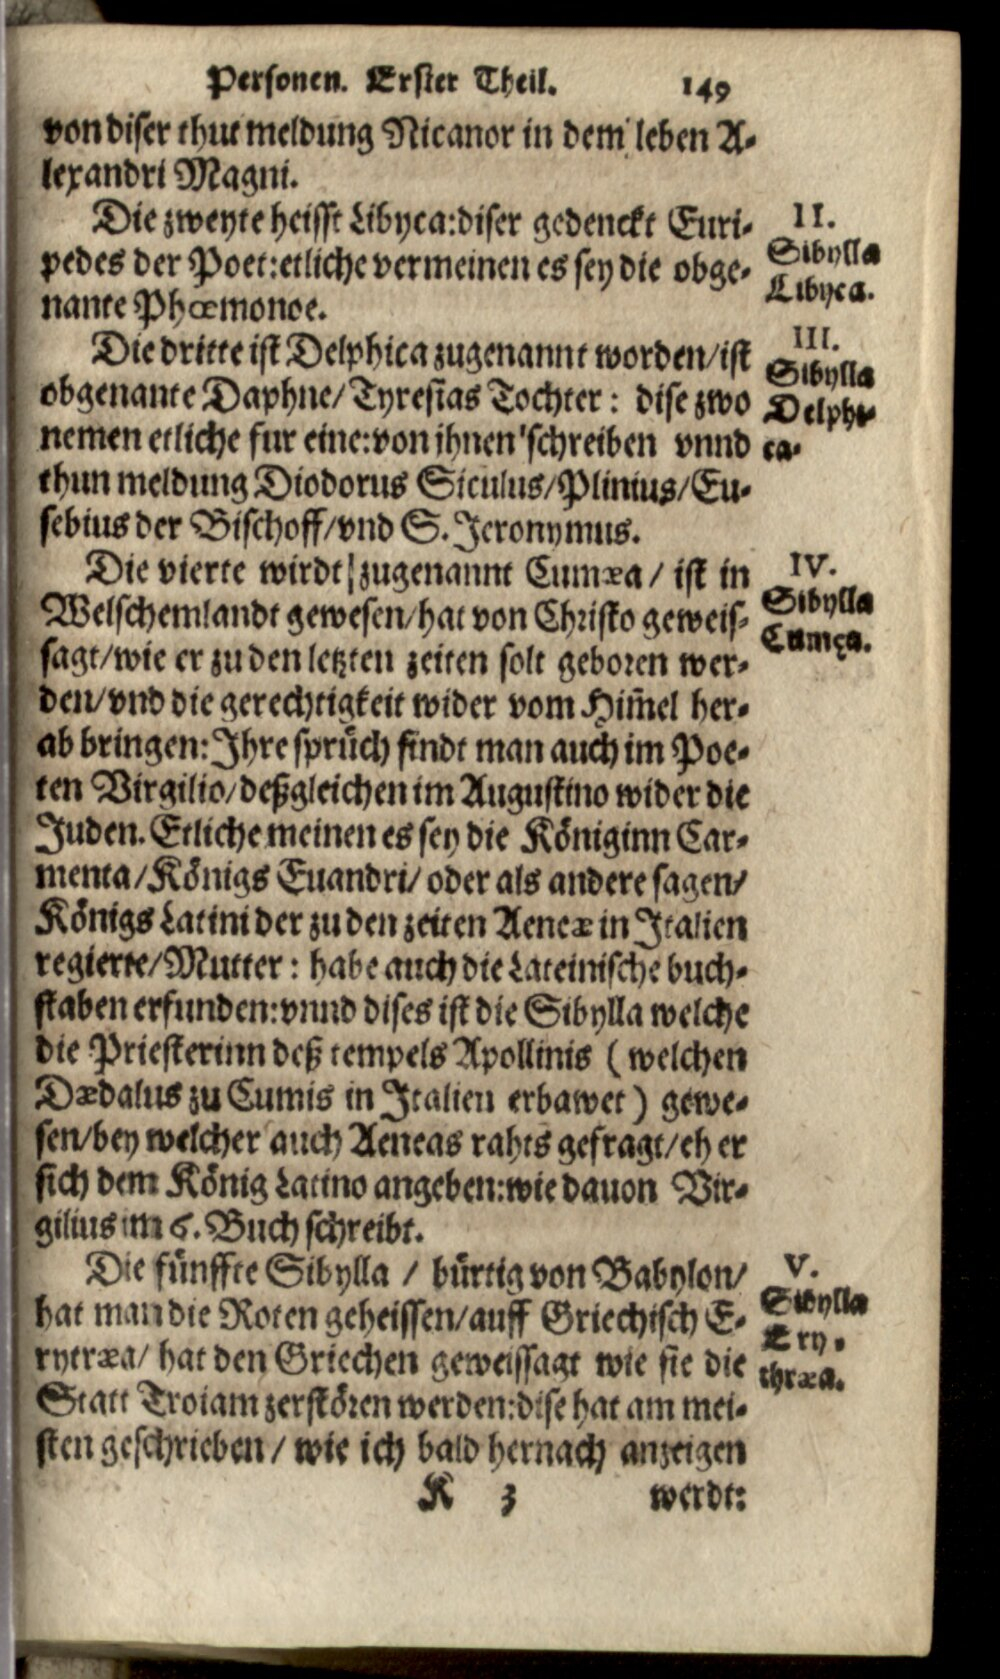 Personen. Erster Theil. 149
von diser thut meldung Nicanor in dem leben A-
lexandri Magni.
Die zweyte heisst Libyca: diser gedenckt Euri-
pedes der Poet: etliche vermeinen es sey die obge-
nante Phœmonoe.
II.
Sibylla
Libyca.
Die dritte ist Delphica zugenannt worden/ ist
obgenante Daphne/ Tyresias Tochter: dise zwo
nemen etliche fur eine: von ihnen schreiben vnnd
thun meldung Diodorus Siculus/ Plinius/ Eu-
sebius der Bischoff/ vnd S. Jeronymus.
III.
Sibylla
Delphi-
ca.
Die vierte wirdt zugenannt Cumæa/ ist in
Welschemlandt gewesen/ hat von Christo geweis-
sagt/ wie er zu den letzten zeiten solt geboren wer-
den/ vnd die gerechtigkeit wider vom Him̃el her-
ab bringen: Ihre sprüch findt man auch im Poe-
ten Virgilio/ deßgleichen im Augustino wider die
Juden. Etliche meinen es sey die Königinn Car-
menta/ Königs Euandri/ oder als andere sagen/
Königs Latini der zu den zeiten Aeneæ in Italien
regierte/ Mutter: habe auch die Lateinische buch-
staben erfunden: vnnd dises ist die Sibylla welche
die Priesterinn deß tempels Apollinis (welchen
Dædalus zu Cumis in Italien erbawet) gewe-
sen/ bey welcher auch Aeneas rahts gefragt/ eh er
sich dem König Latino angeben: wie dauon Vir-
gilius im 6. Buch schreibt.
IV.
Sibylla
Cumęa.
Die fünffte Sibylla / bürtig von Babylon/
hat man die Roten geheissen/ auff Griechisch E-
rytræa/ hat den Griechen geweissagt wie sie die
Statt Troiam zerstören werden: dise hat am mei-
sten geschrieben / wie ich bald hernach anzeigen
V.
Sibylla
Ery-
thræa.
K 3 werdt: